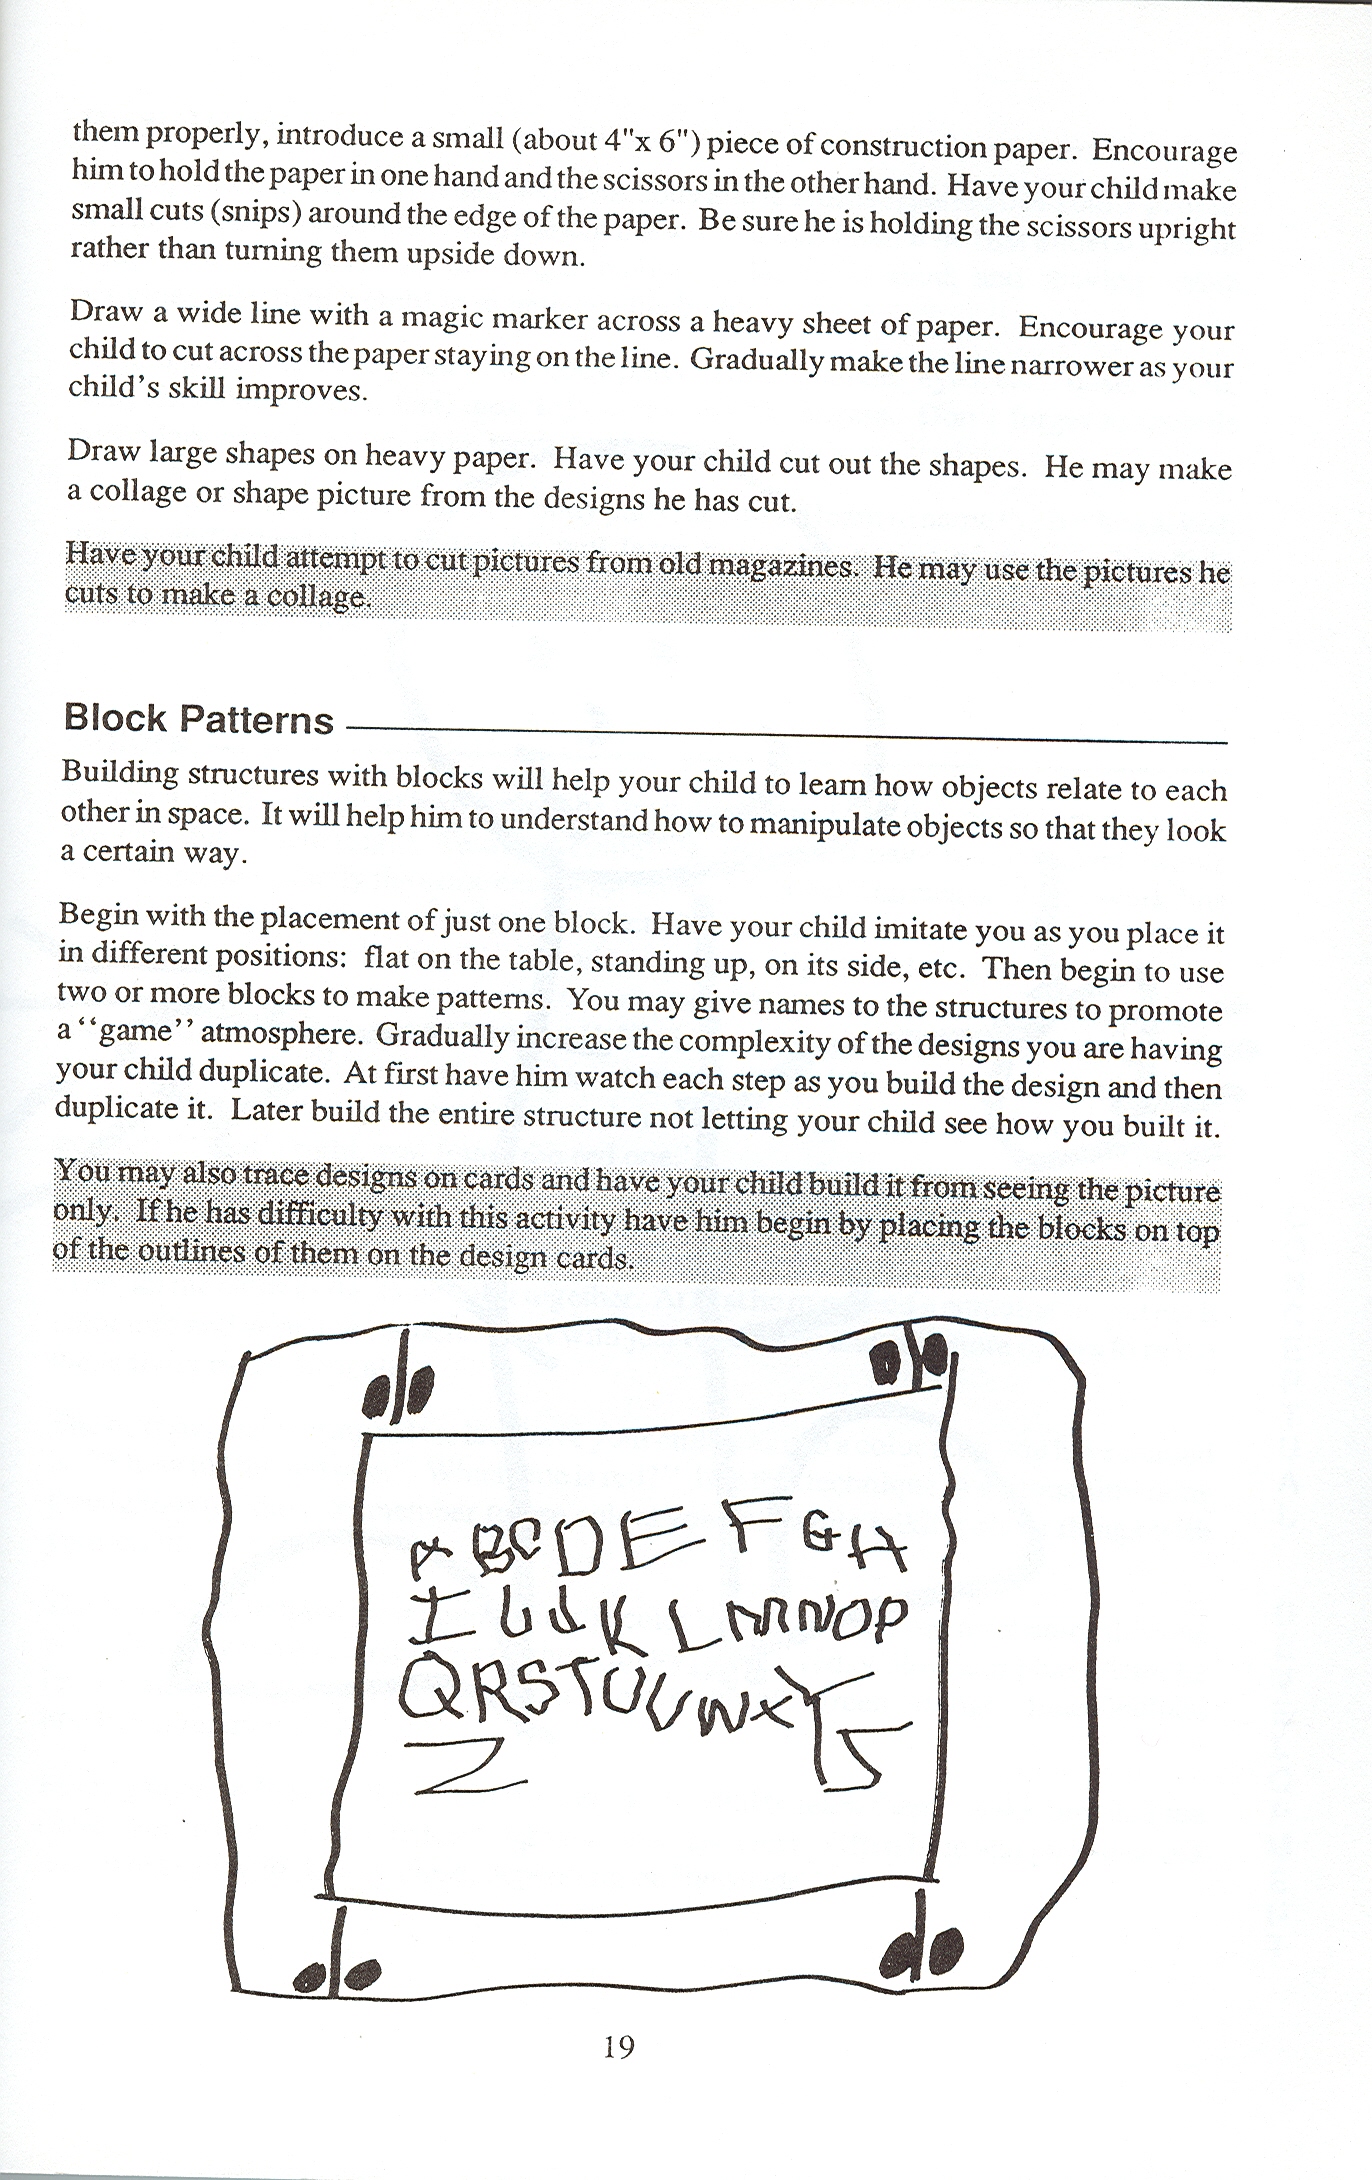 them properly, introduce a small (about 4"x 6") piece of construction paper. Encourage
him to hold the paper in one hand and the scissors in the other hand. Have your child make
small cuts (snips) around the edge of the paper. Be sure he is holding the scissors upright
rather than turning them upside down.
Draw a wide line with a magic marker across a heavy sheet of paper. Encourage your
child to cut across the paper staying on the line. Gradually make the line narrower as your
child's skill improves.
Draw large shapes on heavy paper. Have your child cut out the shapes. He may make
a collage or shape picture from the designs he has cut.
Have your child attempt to cut pictures from old magazines. He may use the pictures he
cuts to make a collage.
Block Patterns
Building structures with blocks will help your child to learn how objects relate to each
other in space. It will help him to understand how to manipulate objects so that they look
a certain way.
Begin with the placement of just one block. Have your child imitate you as you place it
in different positions: flat on the table, standing up, on its side, etc. Then begin to use
two or more blocks to make patterns. You may give names to the structures to promote
a ‘‘game’’ atmosphere. Gradually increase the complexity of the designs you are having
your child duplicate. At first have him watch each step as you build the design and then
duplicate it. Later build the entire structure not letting your child see how you built it.
You may also trace designs on cards and have your child build it from seeing the picture
only. If he has difficulty with this activity have him begin by placing the blocks on top
of the outlines of them on the design cards.
A B C D E F G H
I J K L M N O P
Q R S T U V W X Y
Z
19